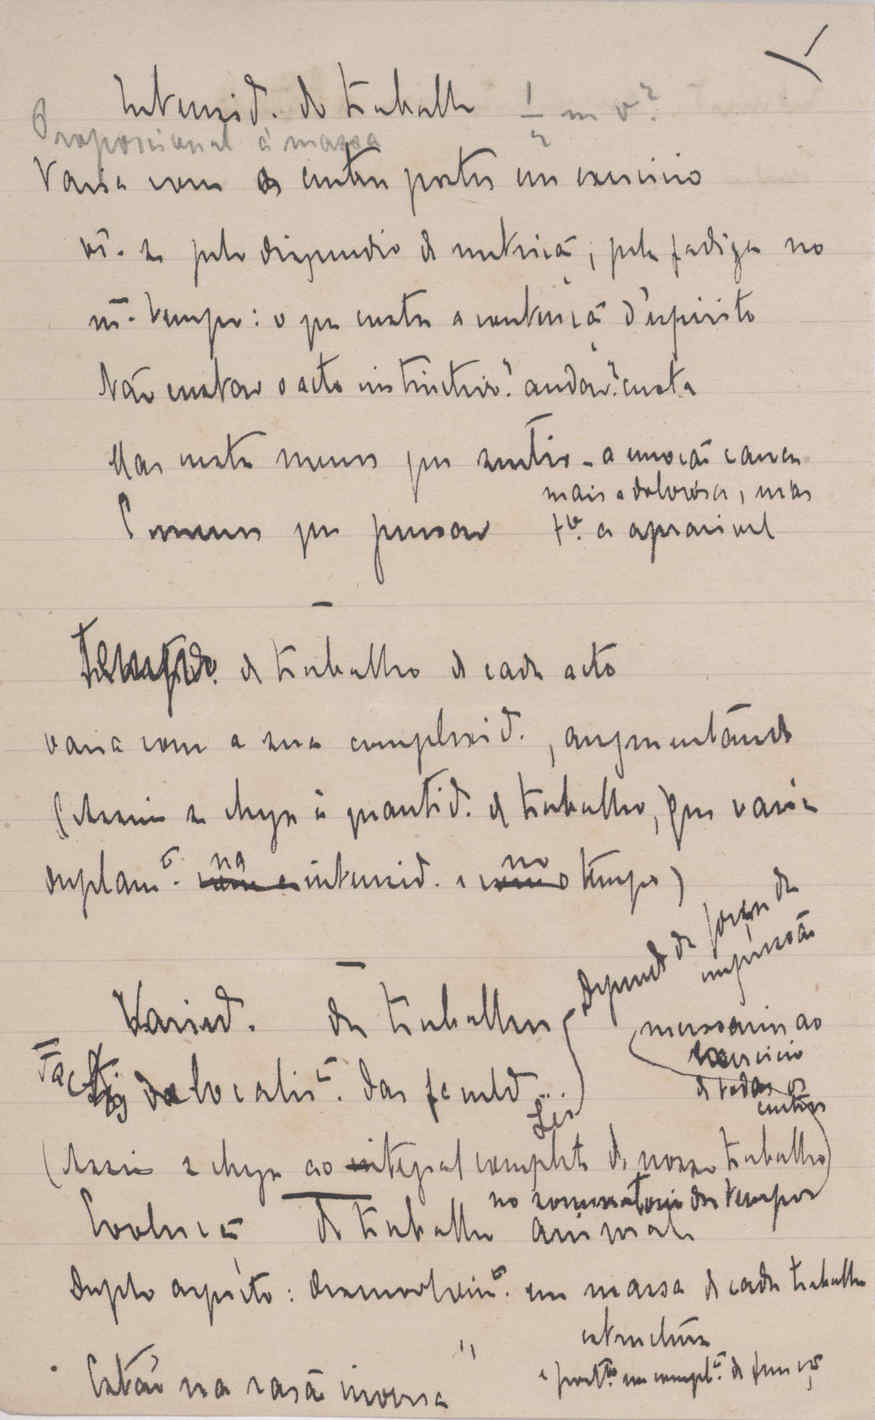 Intensid. do trabalho 1/2 m v²
Proporcional á massa
Varia com os centros postos em exercicio
vê-se pelo dispendio de nutriçã, pela fadiga no
m.mo tempo: o que custa a contençã d'espirito
Não custar o acto instinctivo? andar? custa
Mas custa menos que sentir - a emoçã cança
mais a dolorosa, mas
tb. a aprasivel
E menos que pensar
de trabalho de cada acto
varia com a sua complexid., augmentándo
(Assim se chega á quantid. de trabalho, que varia
duplam.e na intensid. e no tempo)
Depende da força da
impressão
Variad. do trabalho
necessario ao
exercicio
de todos os
centros
Factos da localis. das faculd.
Leis
(Assim se chega ao integral completo do nosso trabalho)
no somatorio dos tempos
Evoluçã do trabalho animal
Duplo aspécto: desenvolvim.to em massa de cada trabalho
estructura
Estão na rasã inversa